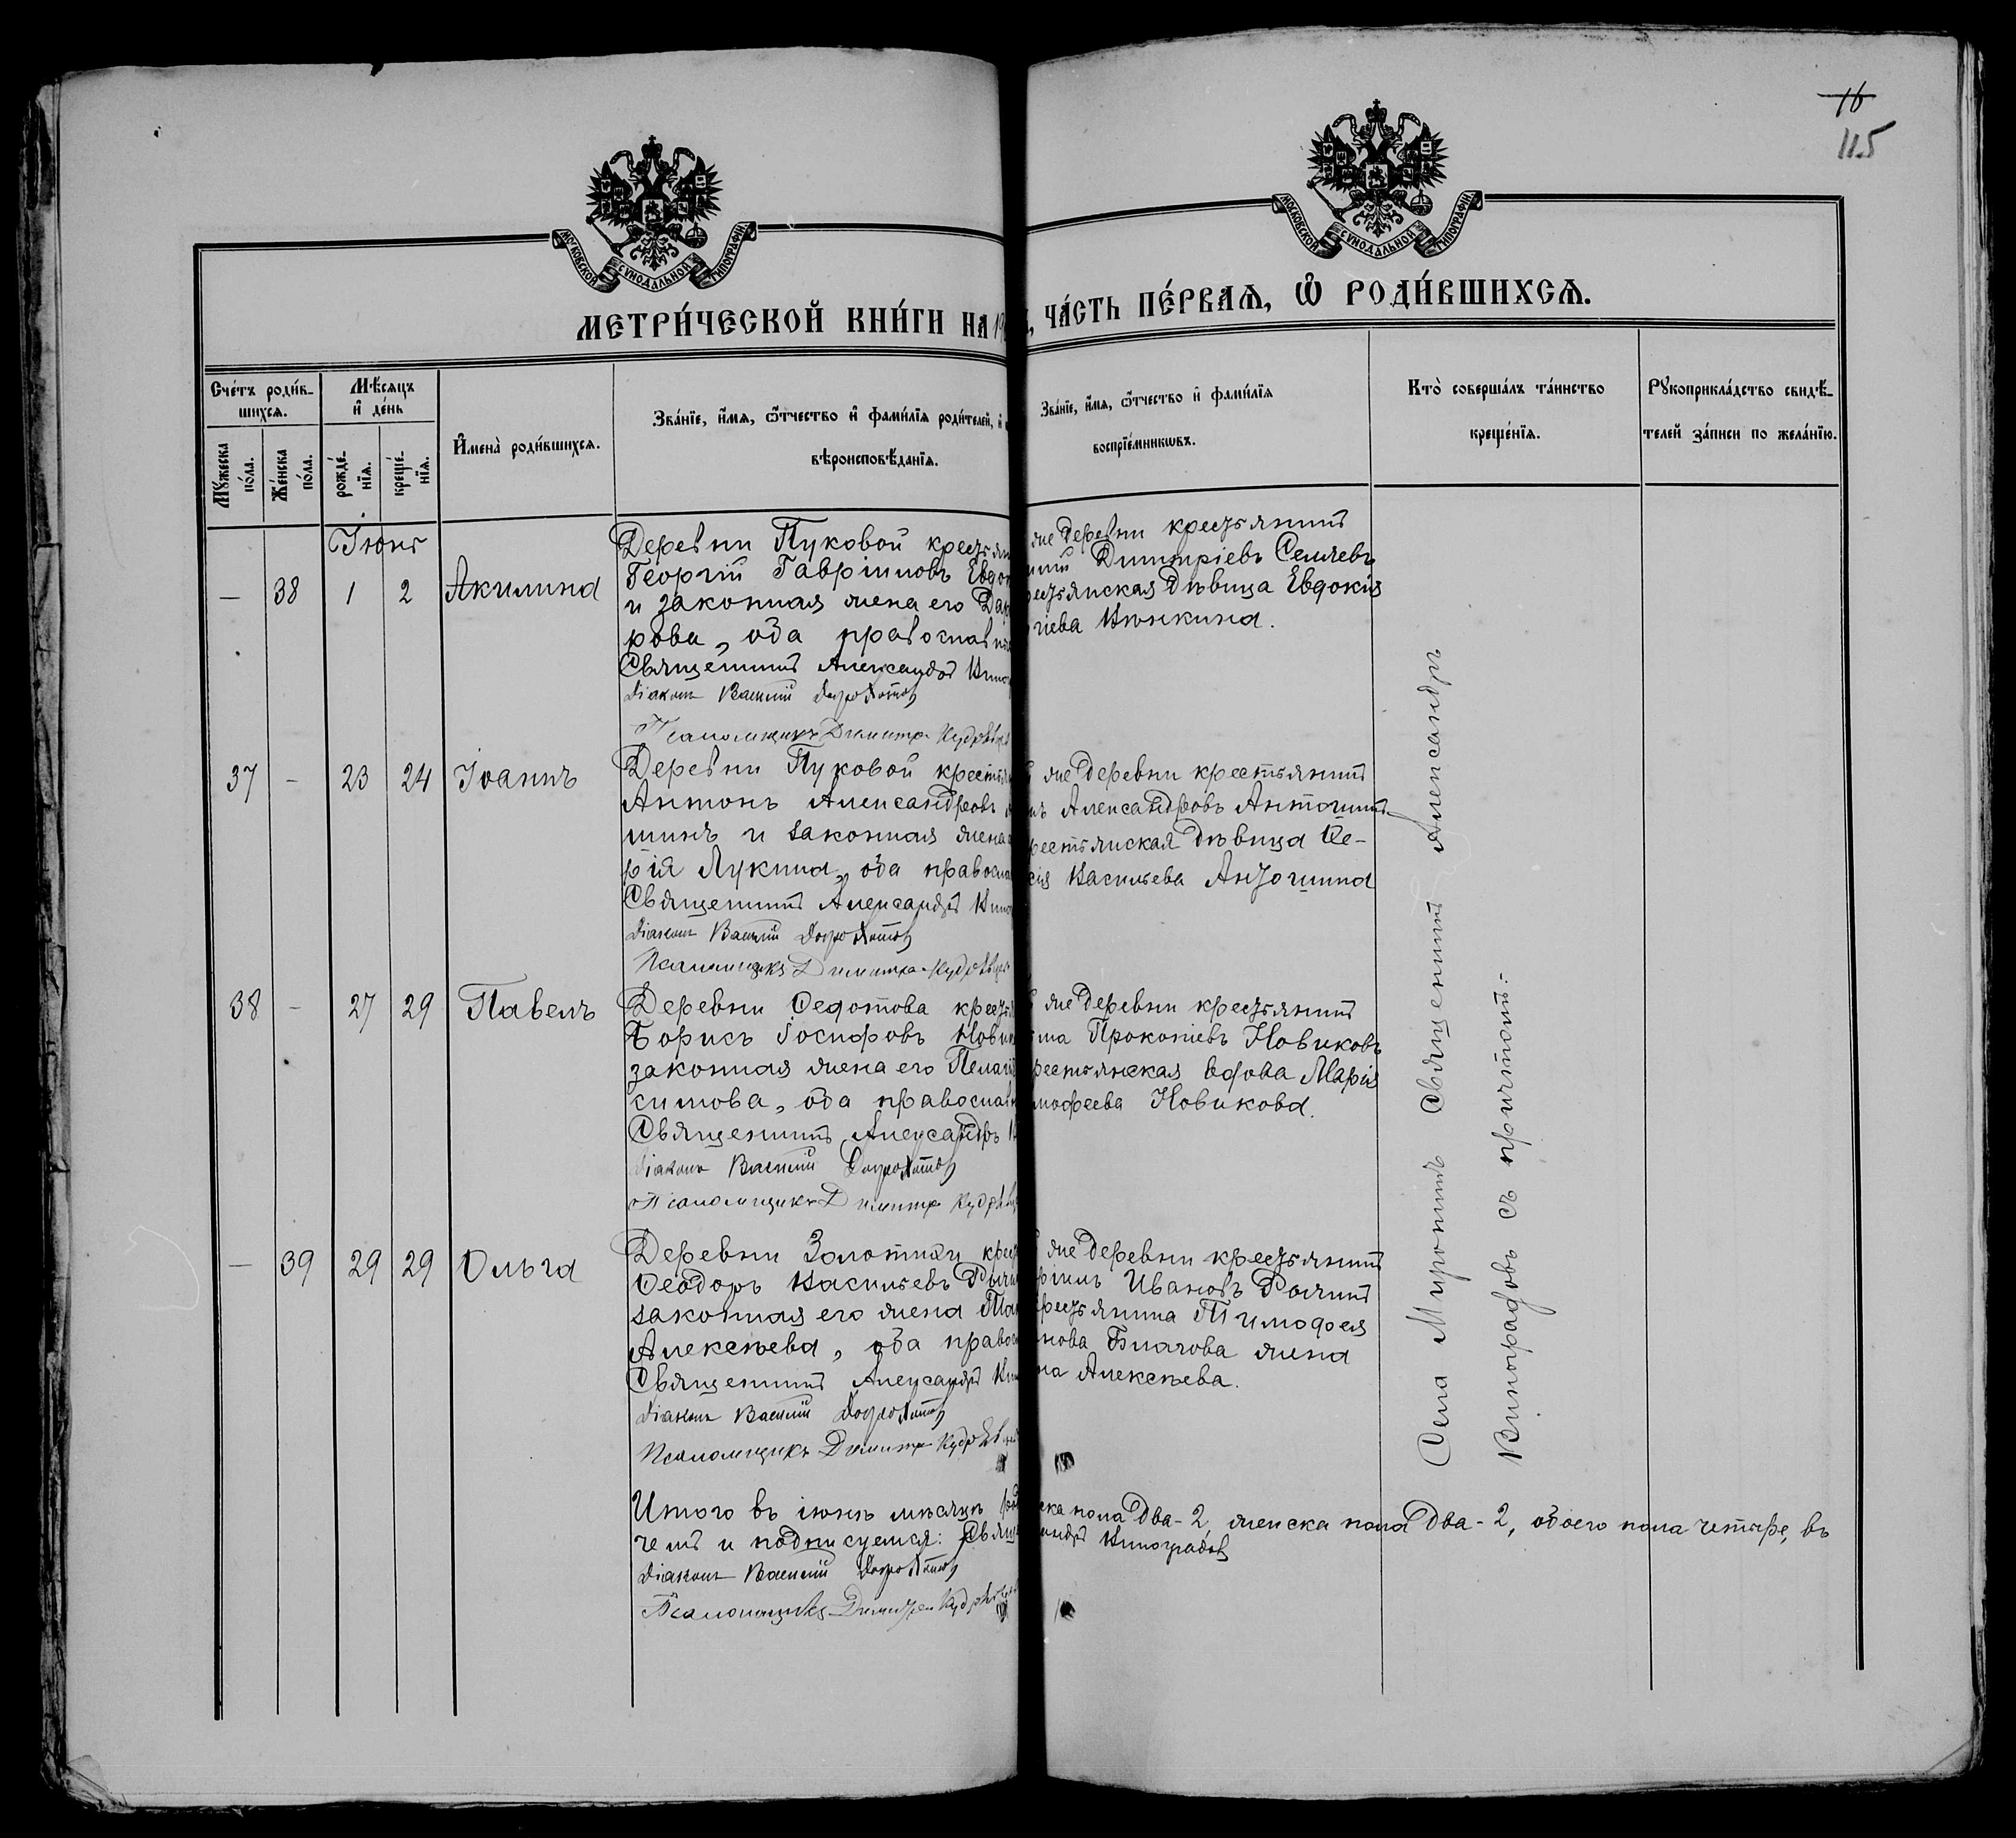 16
115
МОСКОВСКОЙ СѴНОДАЛЬНОЙ ТИПОГРАФІИ.
МОСКОВСКОЙ СѴНОДАЛЬНОЙ ТИПОГРАФІИ.
МЕТРИ́ЧЕСКОЙ КНИ́ГИ НА 19
, ЧА́СТЬ ПЕ́РВАѦ, Ѿ РОДИ́ВШИХСѦ.
Сче́тъ роди́в-
шихсѧ.
Мꙋ́жеска
по́ла.
Же́нска
по́ла.
Мѣ́сѧцъ
и҆ де́нь
рожде́-
нїѧ.
креще́-
нїѧ.
И҆мена̀ роди́вшихсѧ.
Зва́нїе, и҆́мѧ, ѻ҆́тчество и҆ фами́лїѧ роди́телей, и҆
вѣроисповѣ́данїѧ.
Зва́нїе, и҆́мѧ, ѻ҆́тчество и҆ фами́лїѧ
воспрїе́мникѡвъ.
Кто̀ соверша́лъ та́инство
креще́нїѧ.
Рꙋкоприкла́дство свидѣ́-
телей за́писи по жела́нїю.
Іюнь
— 38 1 2 Акилина
Деревни Пуковой крестьян
Георгій Гавріиловъ Евдок
и законная жена его Дар
рова, оба православн
Священникъ Александръ Вино
Діаконъ Василій Доброхотовъ
Псаломщикъ Димитр. Кудрявцев
же деревни крестьянинъ
Димитріевъ Семчевъ
рестьянская дѣвица Евдокія
гіева Кюнкина.
37 — 23 24 Іоаннъ
Деревни Пуковой крестья
Антонъ Александровъ А
шинъ и законная жена
рія Лукина, оба правосла
Священникъ Александръ Вино
Діаконъ Василій Доброхотовъ
Псаломщикъ Димитр. Кудрявцев
же деревни крестьянинъ
нъ Александровъ Антошинъ
рестьянская дѣвица Ѳе-
сія Васильева Антошина
38 — 27 29 Павелъ
Деревни Ѳедотова крестья
Борисъ Іосифовъ Новик
законная жена его Пелагі
симова, оба православн
Священникъ Александръ В
Діаконъ Василій Доброхотовъ
Псаломщикъ Димитр. Кудрявц
же деревни крестьянинъ
ьма Прокопіевъ Новиковъ
рестьянская вдова Марія
мофеева Новикова.
— 39 29 29 Ольга
Деревни Золотихи крест
Ѳеодоръ Васильевъ Рычи
законная его жена Тат
Алексѣева, оба правос
Священникъ Александръ Вин
Діаконъ Василій Доброхотовъ
Псаломщикъ Димитр. Кудрявцев
же деревни крестьянинъ
ріилъ Ивановъ Рычинъ
рестьянина Тимофея
нова Благова жена
на Алексѣева.
Села Миронихъ Священникъ Александръ
Виноградовъ съ причтомъ.
Итого въ іюнѣ мѣсяцѣ ро
ска пола два - 2, женска пола два - 2, обоего пола четыре, въ
чемъ и подписуемся: Свящ
андръ Виноградовъ
Діаконъ Василій Доброхотовъ
Псаломщикъ Димитр. Кудрявцев